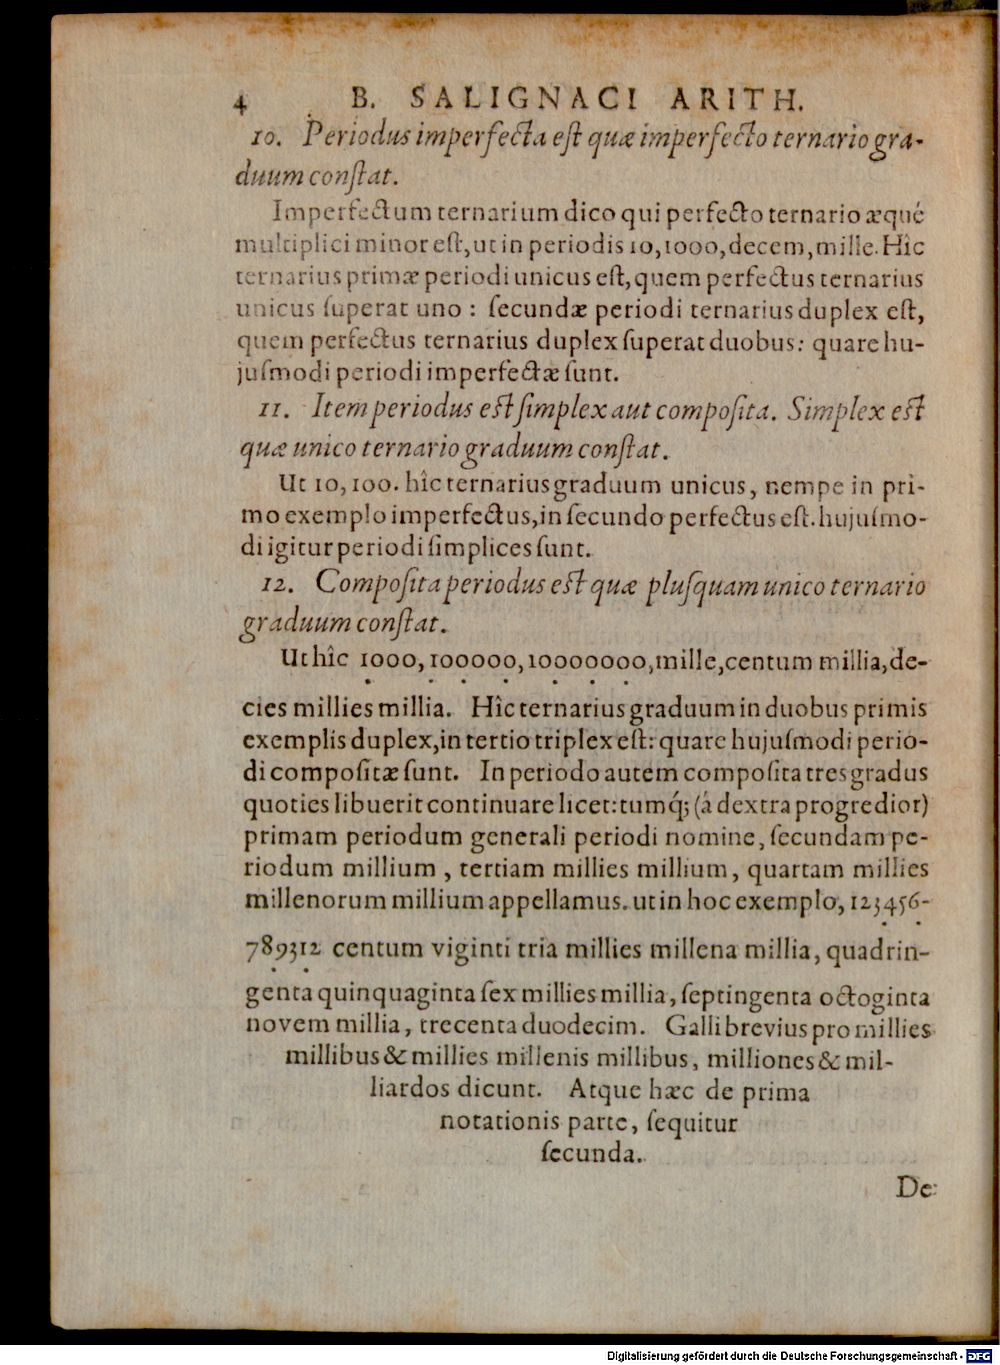 4 B. SALIGNACI ARITH.
10. Periodus imperfecta eſt quæ imperfecto ternario gra-
duum conſtat.
Imperfectum ternarium dico qui perfecto ternario æqué
multiplici minor eſt, ut in periodis 10, 1000, decem, mille. Hîc
ternarius primæ periodi unicus eſt, quem perfectus ternarius
unicus ſuperat uno : ſecundæ periodi ternarius duplex eſt,
quem perfectus ternarius duplex ſuperat duobus: quare hu-
juſmodi periodi imperfectæ ſunt.
11. Item periodus eſt ſimplex aut compoſita. Simplex eſt
quæ unico ternario graduum conſtat.
Ut 10, 100. hîc ternarius graduum unicus, nempe in pri-
mo exemplo imperfectus, in ſecundo perfectus eſt. hujuſmo-
di igitur periodi ſimplices ſunt.
12. Compoſita periodus eſt quæ pluſquam unico ternario
graduum conſtat.
Ut hîc 1000, 100000, 10000000, mille, centum millia, de-
cies millies millia. Hîc ternarius graduum in duobus primis
exemplis duplex, in tertio triplex eſt: quare hujuſmodi perio-
di compoſitæ ſunt. In periodo autem compoſita tres gradus
quoties libuerit continuare licet: tumq́; (á dextra progredior)
primam periodum generali periodi nomine, ſecundam pe-
riodum millium, tertiam millies millium, quartam millies
millenorum millium appellamus. ut in hoc exemplo, 123456-
789312 centum viginti tria millies millena millia, quadrin-
genta quinquaginta ſex millies millia, ſeptingenta octoginta
novem millia, trecenta duodecim. Galli brevius pro millies
millibus & millies millenis millibus, milliones & mil-
liardos dicunt. Atque hæc de prima
notationis parte, ſequitur
ſecunda.
De
Digitalisierung gefördert durch die Deutsche Forschungsgemeinschaft - DFG